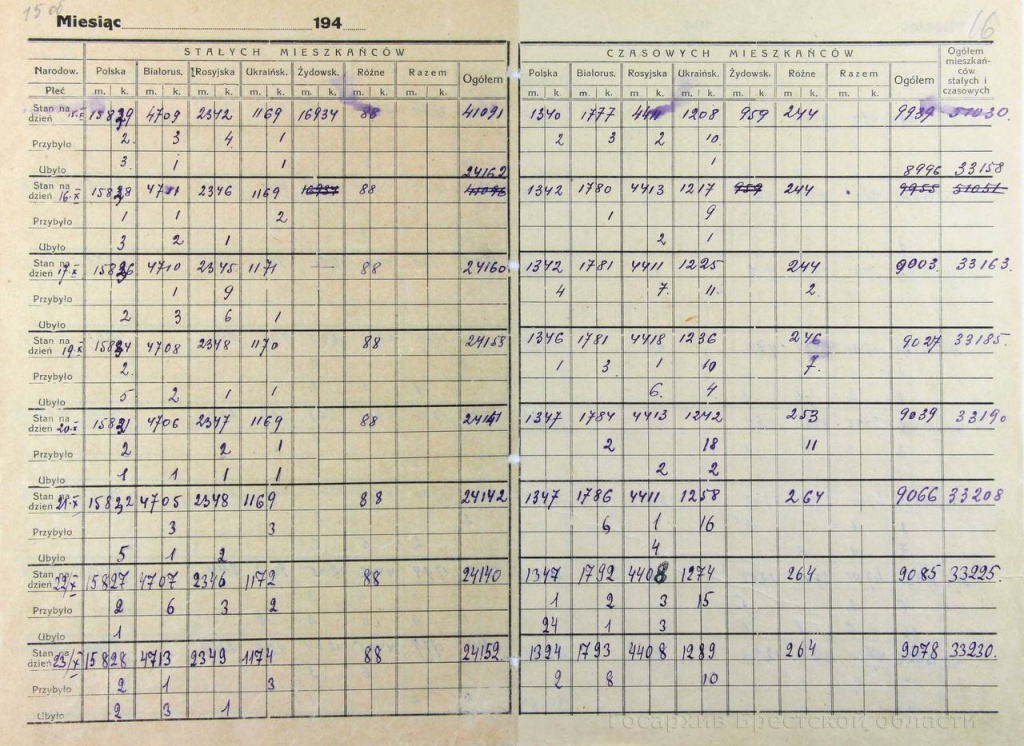 16
Miesiąc 194
STAŁYCH MIESZKAŃCÓW CZASOWYCH MIESZKAŃCÓW Ogółem mieszkańców stałych i czasowych
Narodow. Polska Białorus. Rosyjska Ukraińsk. Żydowsk. Różne Razem Ogółem Polska Białorus. Rosyjska Ukraińsk. Żydowsk. Różne Razem Ogółem
Płeć m. k. m. k. m. k. m. k. m. k. m. k. m. k. m. k. m. k. m. k. m. k. m. k. m. k. m. k.
Stan na dzień 4709 2342 1169 16934 88 41091 1340 1777 1208 959 244 9939 51030.
Przybyło 2. 3 4 1 2 3 2 10
Ubyło 3. 1 1 24162 1 8996 33158
Stan na dzień 16.X 15828 4711 2346 1169 16934 88 1342 1780 4413 1217 959 244 9955 51051
Przybyło 1 1 2 1 9
Ubyło 3 2 1 2 1
Stan na dzień 17.X 15826 4710 2345 1171 — 88 24160 1342 1781 4411 1225 244 9003. 33163.
Przybyło 1 9 4 7. 11 2.
Ubyło 2 3 6 1
Stan na dzień 19.X 15824 4708 2348 1170 88 24153 1346 1781 4418 1236 246 9027 33185.
Przybyło 2. 1 3 1 10 7.
Ubyło 5 2 1 1 6. 4
Stan na dzień 20.X 15821 4706 2347 1169 88 24141 1347 1784 4413 1242 253 9039 33190
Przybyło 2 2 1 2 18 11
Ubyło 1 1 1 1 2 2
Stan na dzień 21.X 15822 4705 2348 1169 88 24142 1347 1786 4411 1258 264 9066 33208
Przybyło 3 3 6 1 16
Ubyło 5 1 2 4
Stan na dzień 22/X 15827 4707 2346 1172 88 24140 1347 1792 4408 1274 264 9085 33225.
Przybyło 2 6 3 2 1 2 3 15
Ubyło 1 24 1 3
Stan na dzień 23/X 15828 4713 2349 1174 88 24152 1324 1793 4408 1289 264 9078 33230.
Przybyło 2 1 3 2 8 10
Ubyło 2 3 1
Госархив Брестской области